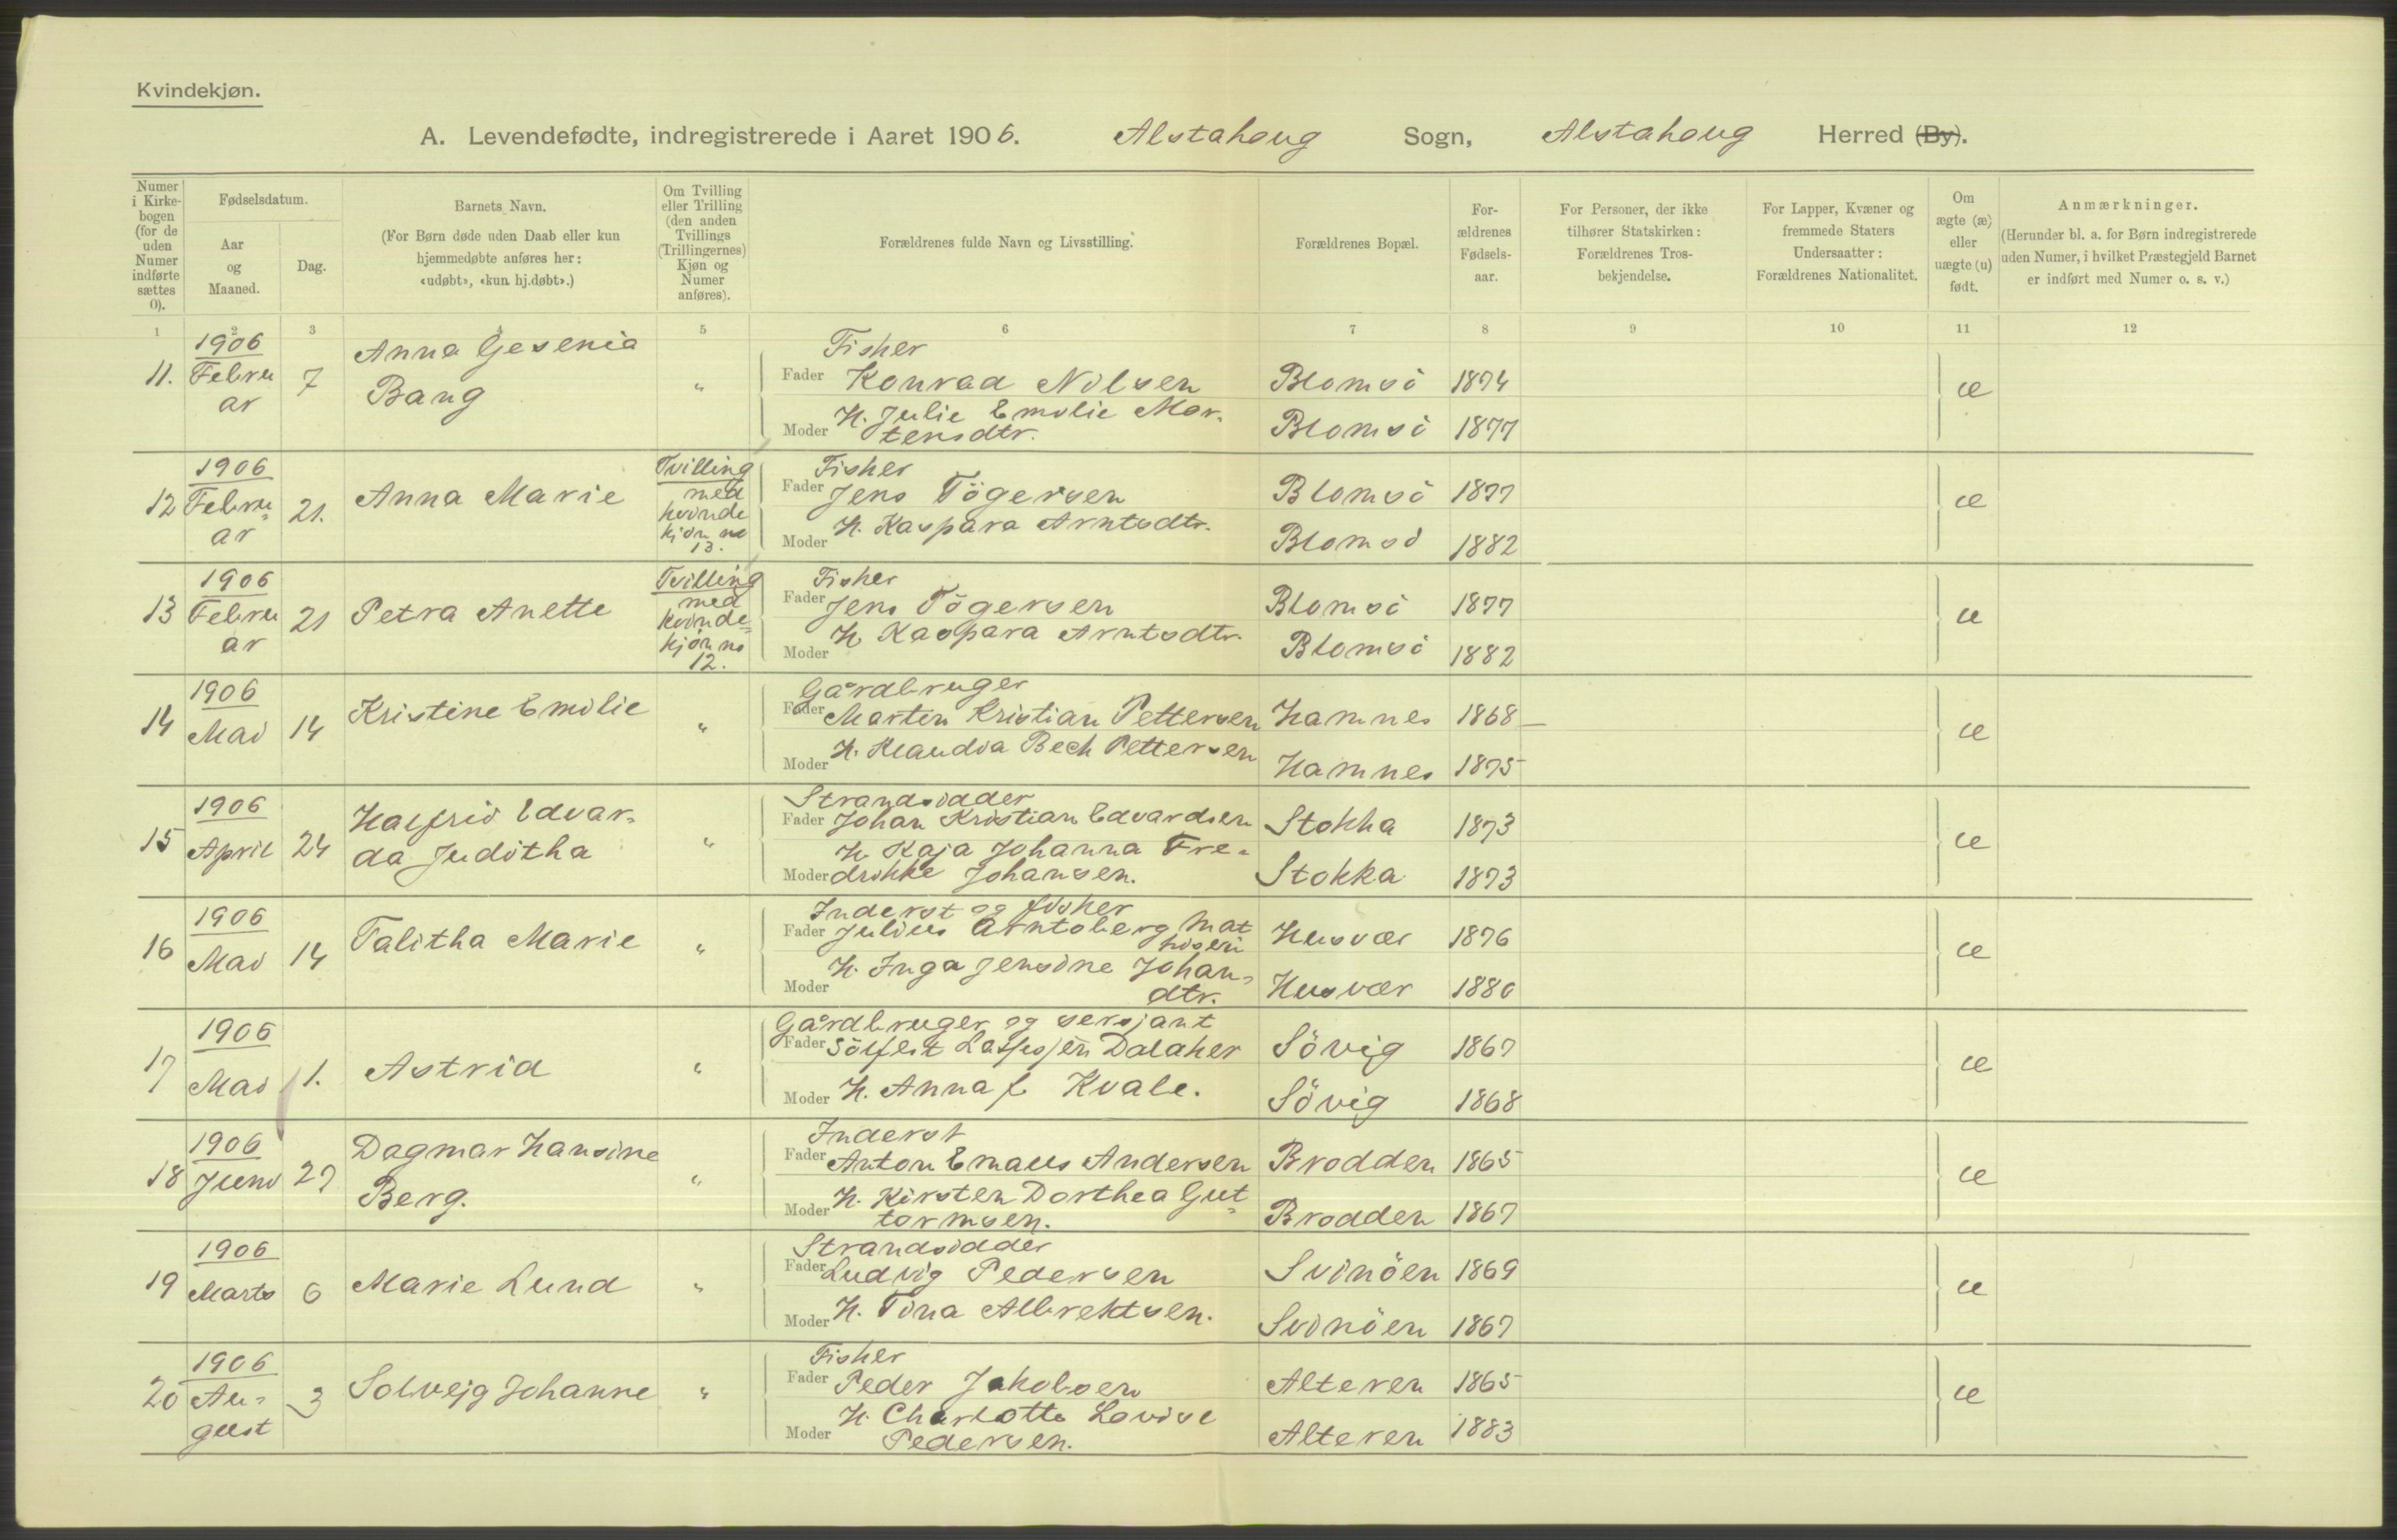 Kvindekjøn.
A. Levendefødte, indregistrerede i Aaret 1906. Alstahoug Sogn, Alstahoug Herred (By).
Numer i Kirkebogen (for de uden Numer indførte sættes 0).
Fødselsdatum.
Aar og Maaned.
Dag.
Barnets Navn.
(For Børn døde uden Daab eller kun hjemmedøbte anføres her: «udøbt», «kun hj.døbt».)
Om Tvilling eller Trilling (den anden Tvillings (Trillingernes) Kjøn og Numer anføres).
Forældrenes fulde Navn og Livsstilling.
Forældrenes Bopæl.
Forældrenes Fødselsaar.
For Personer, der ikke tilhører Statskirken: Forældrenes Trosbekjendelse.
For Lapper, Kvæner og fremmede Staters Undersaatter: Forældrenes Nationalitet.
Om ægte (æ) eller uægte (u) født.
Anmærkninger.
(Herunder bl. a. for Børn indregistrerede uden Numer, i hvilket Præstegjeld Barnet er indført med Numer o. s. v.)
1 2 3 4 5 6 7 8 9 10 11 12
11. 1906 Februar 7 Anna Gesenia Bang "
Fisker
Fader Konrad Nilsen Blomsö 1874 æ
Moder H. Julie Emilie Mortensdtr. Blomsö 1877
12 1906 Februar 21. Anna Marie Tvilling med kvindekjön no 13.
Fisker
Fader Jens Tögersen Blomsö 1877 æ
Moder H. Kaspara Arntsdtr. Blomsö 1882
13 1906 Februar 21 Petra Anette Tvilling med kvindekjön no 12.
Fisker
Fader Jens Tögersen Blomsö 1877 æ
Moder H. Kaspara Arntsdtr. Blomsö 1882
14 1906 Mai 14 Kristine Emilie "
Gårdbruger
Fader Morten Kristian Pettersen Hamnes 1868 æ
Moder H. Klaudia Bech Pettersen Hamnes 1875
15 1906 April 24 Halfrid Edvarda Juditha "
Strandsidder
Fader Johan Kristian Edvardsen Stokka 1873 æ
Moder H. Kaja Johanna Fredrikke Johansen. Stokka 1873
16 1906 Mai 14 Talitha Marie "
Inderst og fisker
Fader Julius Arntsberg Mathisen Husvær 1876 æ
Moder H. Inga Jensine Johandtr. Husvær 1880
17 1906 Mai 1. Astrid "
Gårdbruger og sersjant
Fader Sölfest Dalaker Sövig 1867 æ
Moder H. Anna f Kvale. Sövig 1868
18 1906 Juni 27 Dagmar Hansine Berg. "
Inderst
Fader Anton Emaus Andersen Brodden 1865 æ
Moder H. Kirsten Dorthea Guttormsen. Brodden 1867
19 1906 Marts 6 Marie Lund "
Strandsidder
Fader Ludvig Pedersen Svinöen 1869 æ
Moder H. Tina Albrektsen. Svinöen 1867
20 1906 August 3 Solveig Johanne "
Fisker
Fader Peder Jakobsen Alteren 1865 æ
Moder H. Charlotte Lovise Pedersen. Alteren 1883